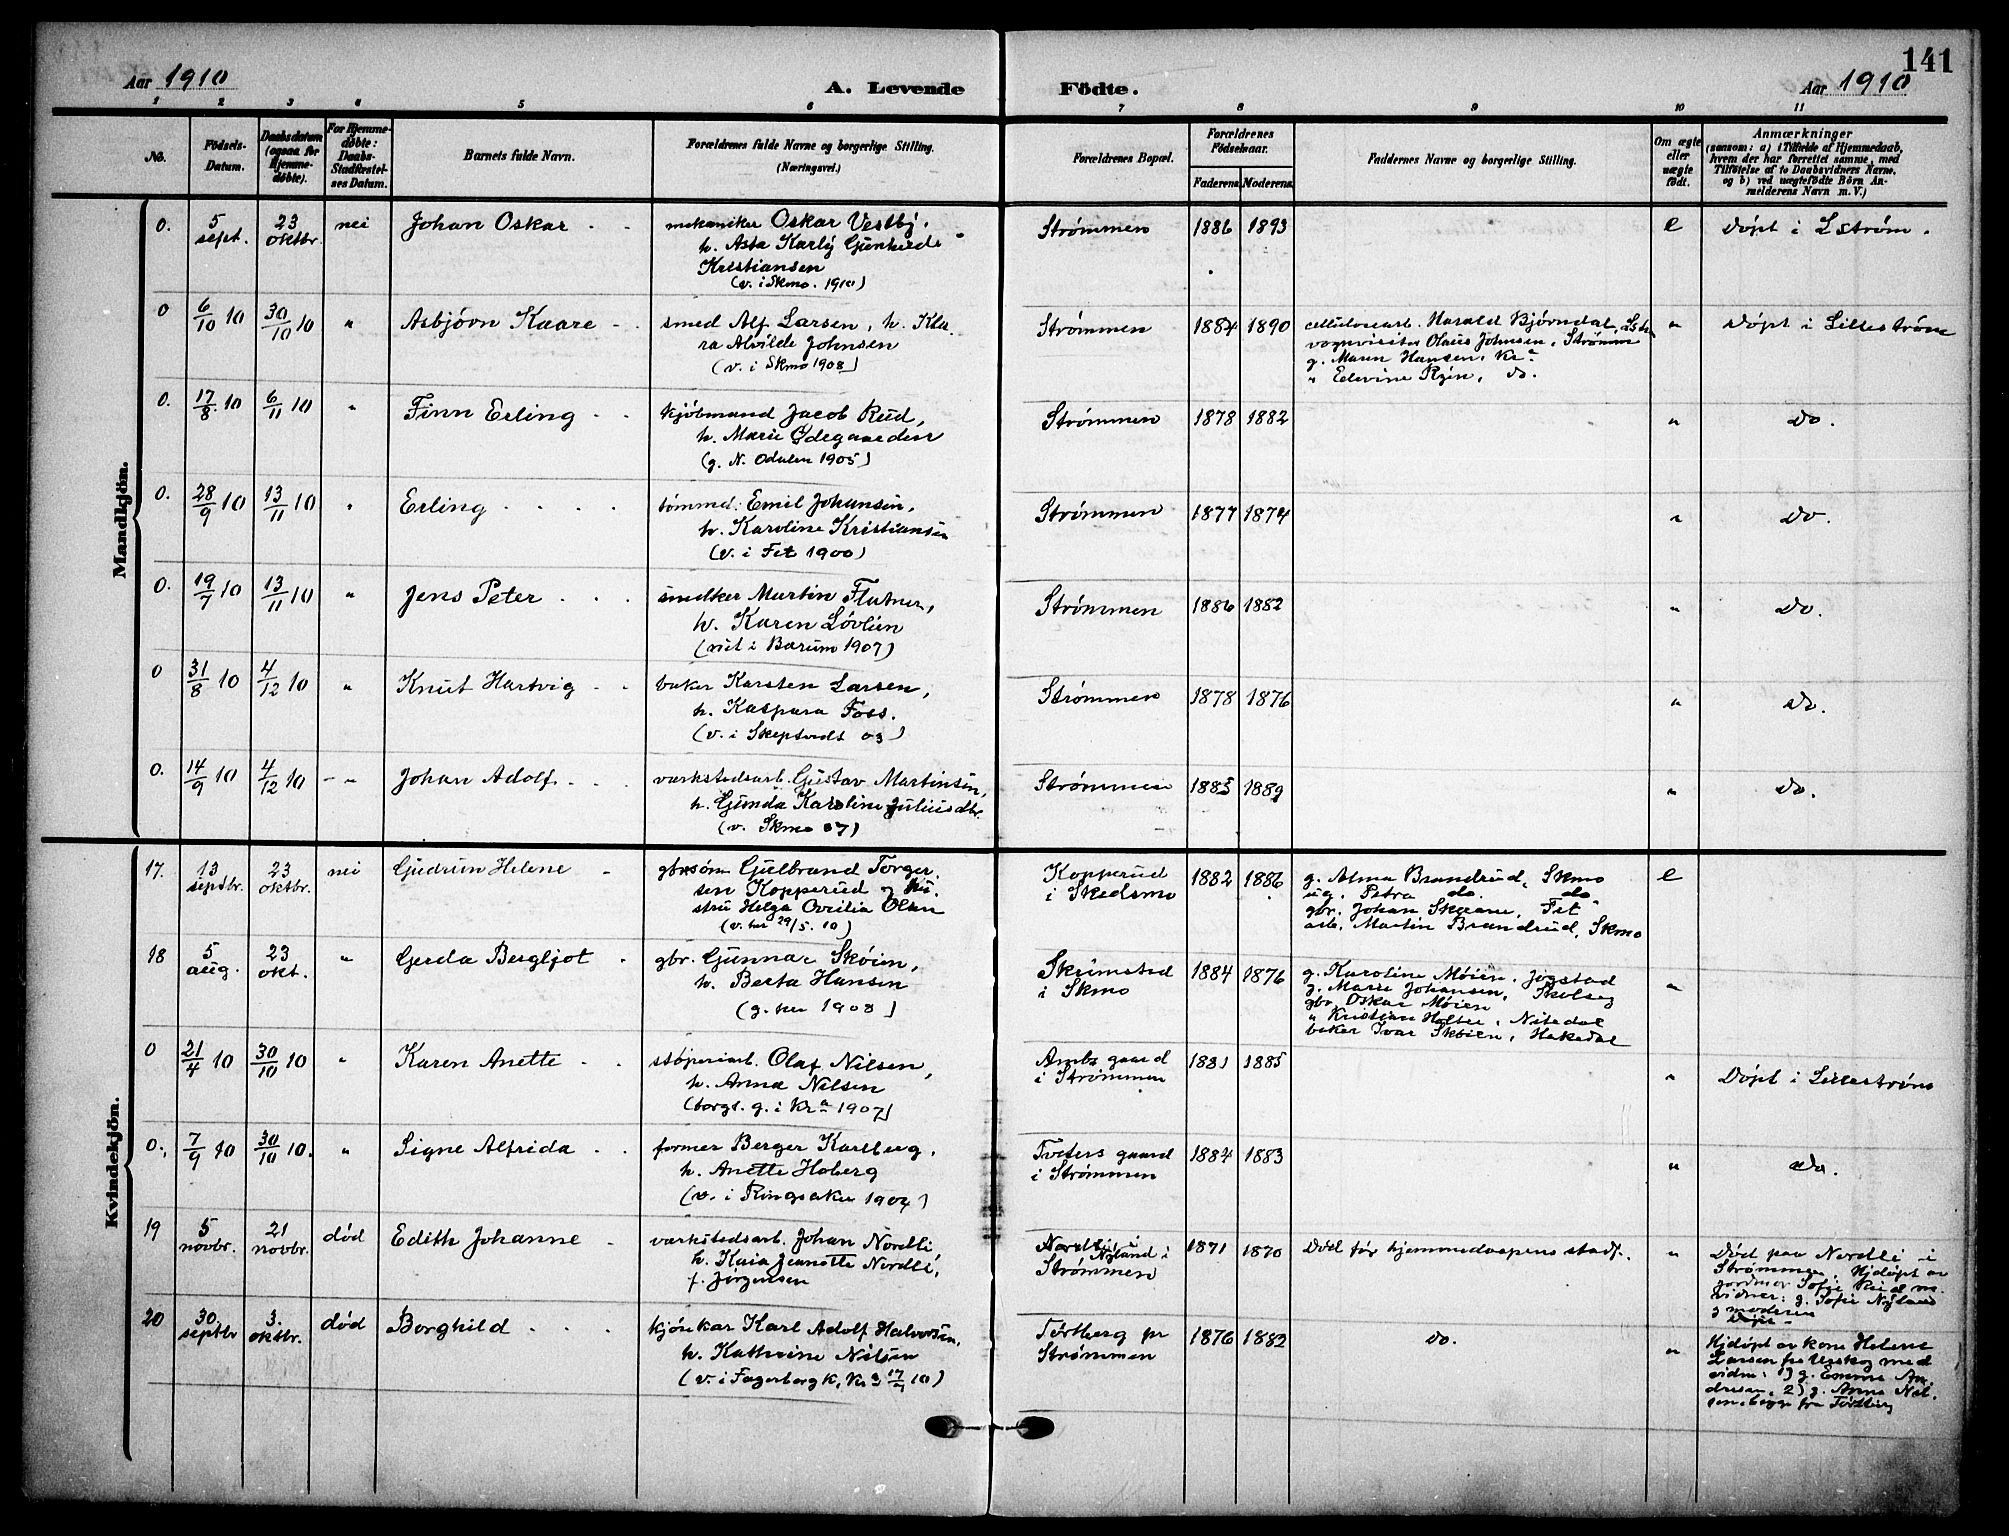 141
Aar 1910
A. Levende
Födte.
Aar 1910
1 2 3 4 5 6 7 8 9 10 11
No.
Födsels-
Datum.
Daabsdatum
(ogsaa for
Hjemme-
döbte).
For Hjemme-
döbte:
Daabs-
Stadfæstel-
ses Datum.
Barnets fulde Navn.
Forældrenes fulde Navne og borgerlige Stilling.
(Næringsvei.)
Forældrenes Bopæl.
Forældrenes
Födselsaar.
Faderens Moderens
Faddernes Navne og borgerlige Stilling.
Om ægte
eller
uægte
födt.
Anmærkninger
(saasom: a) i Tilfælde af Hjemmedaab,
hvem der har forrettet samme, med
Tilföielse af to Daabsvidners Navne,
og b) ved uægtefödte Börn An-
melderens Navn m. V.)
Mandkjön.
0. 5 sept. 23 oktbr. nei Johan Oskar
mekaniker Oskar Vestby,
h. Asta Karly
Kristiansen
(v. i Skmo. 1910)
Strømmen 1886 1893 e Døpt i Lstrøm.
0 6/10 10 30/10 10 " Asbjørn Kaare
smed Alf Larsen, h. Kla-
ra Alvilde Johnsen
(v. i Skmo 1908)
Strømmen 1884 1890
cellulosearb. Harald Bjørndal, Lstr.
Olaus Johnsen, Strømm
g. Maren Hansen, Kra
" Edevine do.
" Døpt i Lillestrøm
0. 17/8 10 6/11 10 " Finn Erling
kjøbmand Jacob Rud,
h. Marie Ødegaarden
(g. N. Odalen 1905)
Strømmen 1878 1882 " do.
0. 28/9 10 13/11 10 " Erling
tømmerm. Emil Johansen,
h. Karoline Kristiansen
(v. i Fet 1900)
Strømmen 1877 1874 " do.
0. 19/7 10 13/11 10 " Jens Peter
snedker Martin
h. Karen Løvlien
(viet i Bærum 1907)
Strømmen 1886 1882 " do.
0 31/8 10 4/12 10 " Knut Hartvig
baker Karsten Larsen,
h. Kaspara Foss.
(v. i Skeptvedt 03)
Strømmen 1878 1876 " do.
0. 14/9 10 4/12 10 " Johan Adolf
værkstedsarb. Gustav Martinsen,
h. Gunda Karoline Juliusdtr.
(v. Skmo 07)
Strømmen 1885 1889 " do.
Kvindekjön.
17. 13 septbr. 23 oktbr. nei Gudrun Helene
gbrsøn Gulbrand Torger-
sen Kopperud og hu-
stru Helga Ovedia Olsen
(v. her 29/5. 10)
Kopperud
i Skedsmo
1882 1886
g. Alma Brandrud, Skmo
ug. Petra do. do.
gbr. Johan Skjeane, Fet
arb. Martin Brandrud, Skmo
e
18 5 aug. 23 okt. " Gerda Bergljot
gbr. Gunnar Skøien,
h. Berta Hansen
(g. her 1908)
Skrimstad
i Skmo
1884 1876
g. Karoline Møien, Jogstad
g. Marie Johansen,
gbr. Oskar Møien
" Kristian Holter, Nitedal
baker Ivar Skøien, Hakedal
"
0 21/4 10 30/10 10 " Karen Anette
støperiarb. Olaf Nilsen,
h. Anna Nilsen
(borgl. g. i Kra 1907)
gaard
i Strømmen
1881 1885 " Døpt i Lillestrøm
0. 7/9 10 30/10 10. " Signe Alfrida
former Berger Karlberg,
h. Anette Hoberg
(v. i Ringsaker 1904)
Tveters gaard
i Strømmen
1884 1883 " do.
19 5 novbr. 21 novbr. død Edith Johanne
værkstedsarb. Johan Nordli,
h. Kaia Jeanette Nordli,
f. Jørgensen
Nordli i
Nyland i
Strømmen
1871 1870 Død før hjemmedaapens stadf. "
Død paa Nordli i
Strømmen. Hjdøpt av
jordmor Sofie Rud m.
vidner: g. Sofie Nyland
og moderen
20 30 septbr 3. oktbr. død Borghild
kjørekar Karl Adolf Halvorsen,
h. Kathrine Nilsen
(v. i Fagerborg k, Kra 10)
Tørtberg pr
Strømmen
1876 1882 do. "
Hjdøpt av kone Helene
Larsen fra Urskog med
vidn: 1) g. Emma An-
dresen, 2) g. Anna Nil-
sen, begge fra Tørtberg